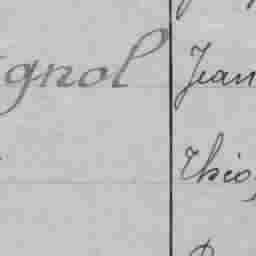 gnol Jean
Théo